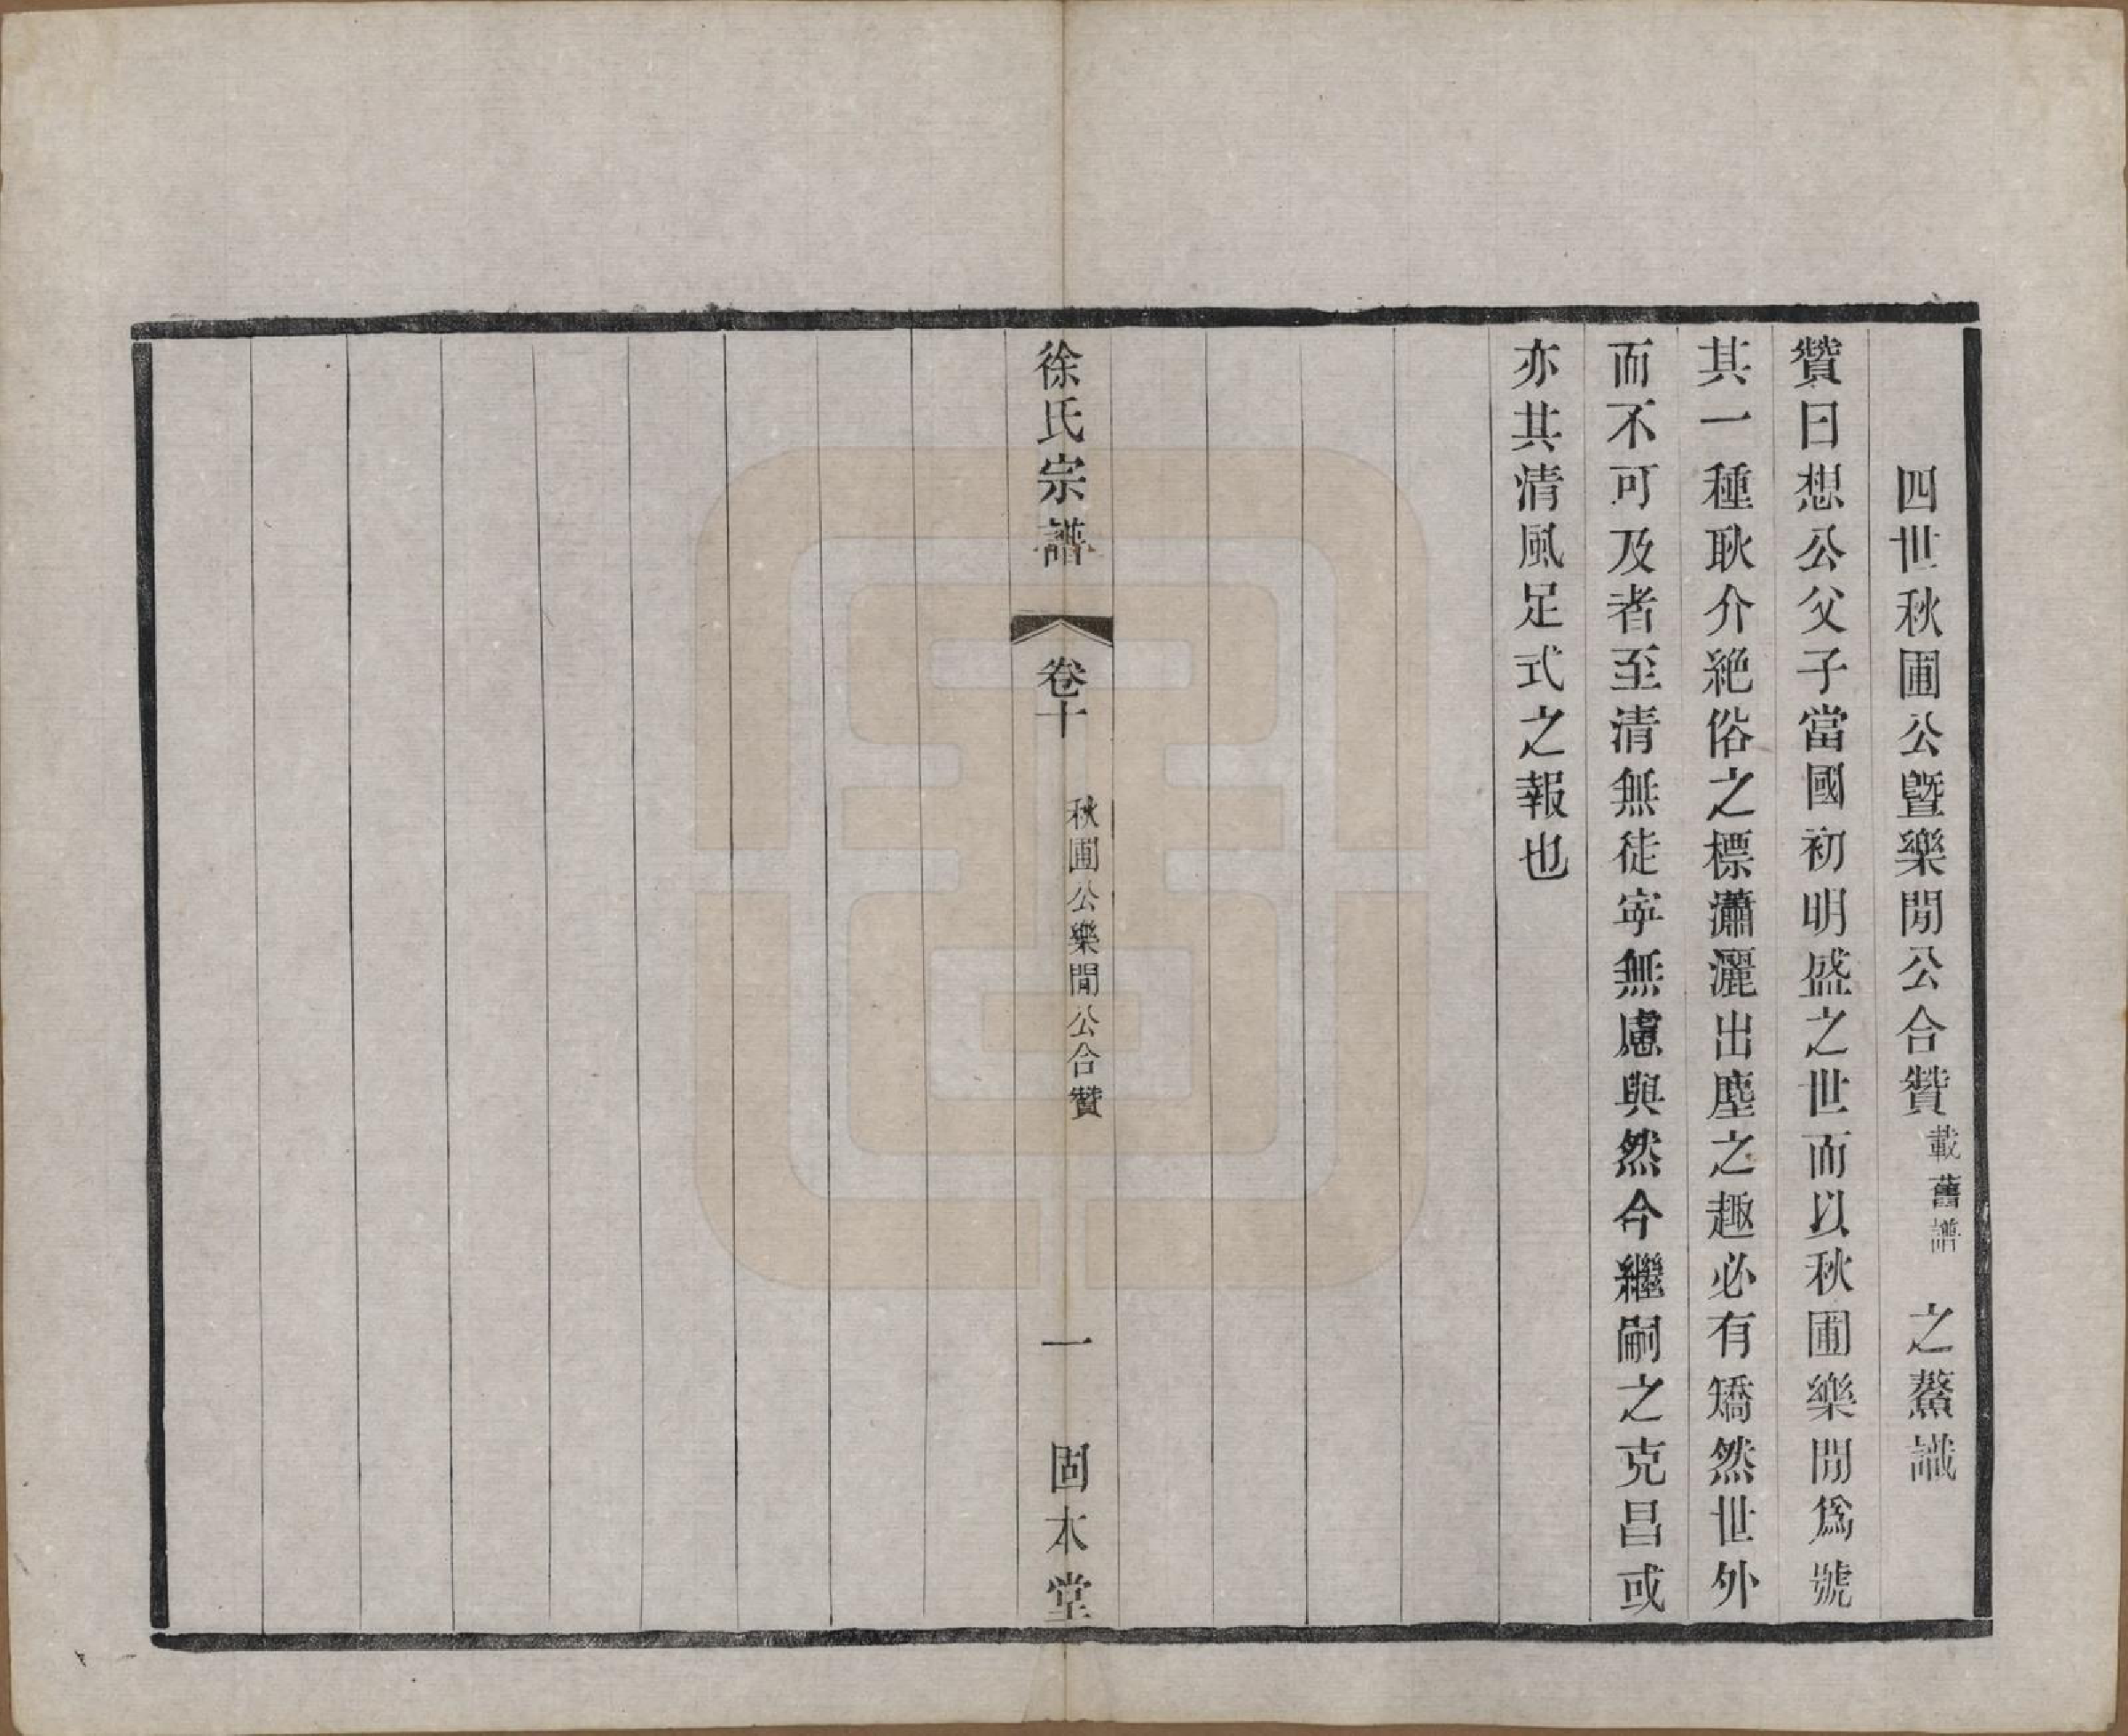 四世秋圃公暨樂閒公合贊載舊譜　之鰲識
贊曰想公父子當國初明盛之世而以秋圃樂閒爲號
其一種耿介絶俗之標瀟灑出塵之趣必有矯然世外
而不可及者至清無徒寧無慮與然今繼嗣之克昌或
亦其清風足式之報也
徐氏宗譜　卷十　秋圃公樂閒公合贊　一　固本堂